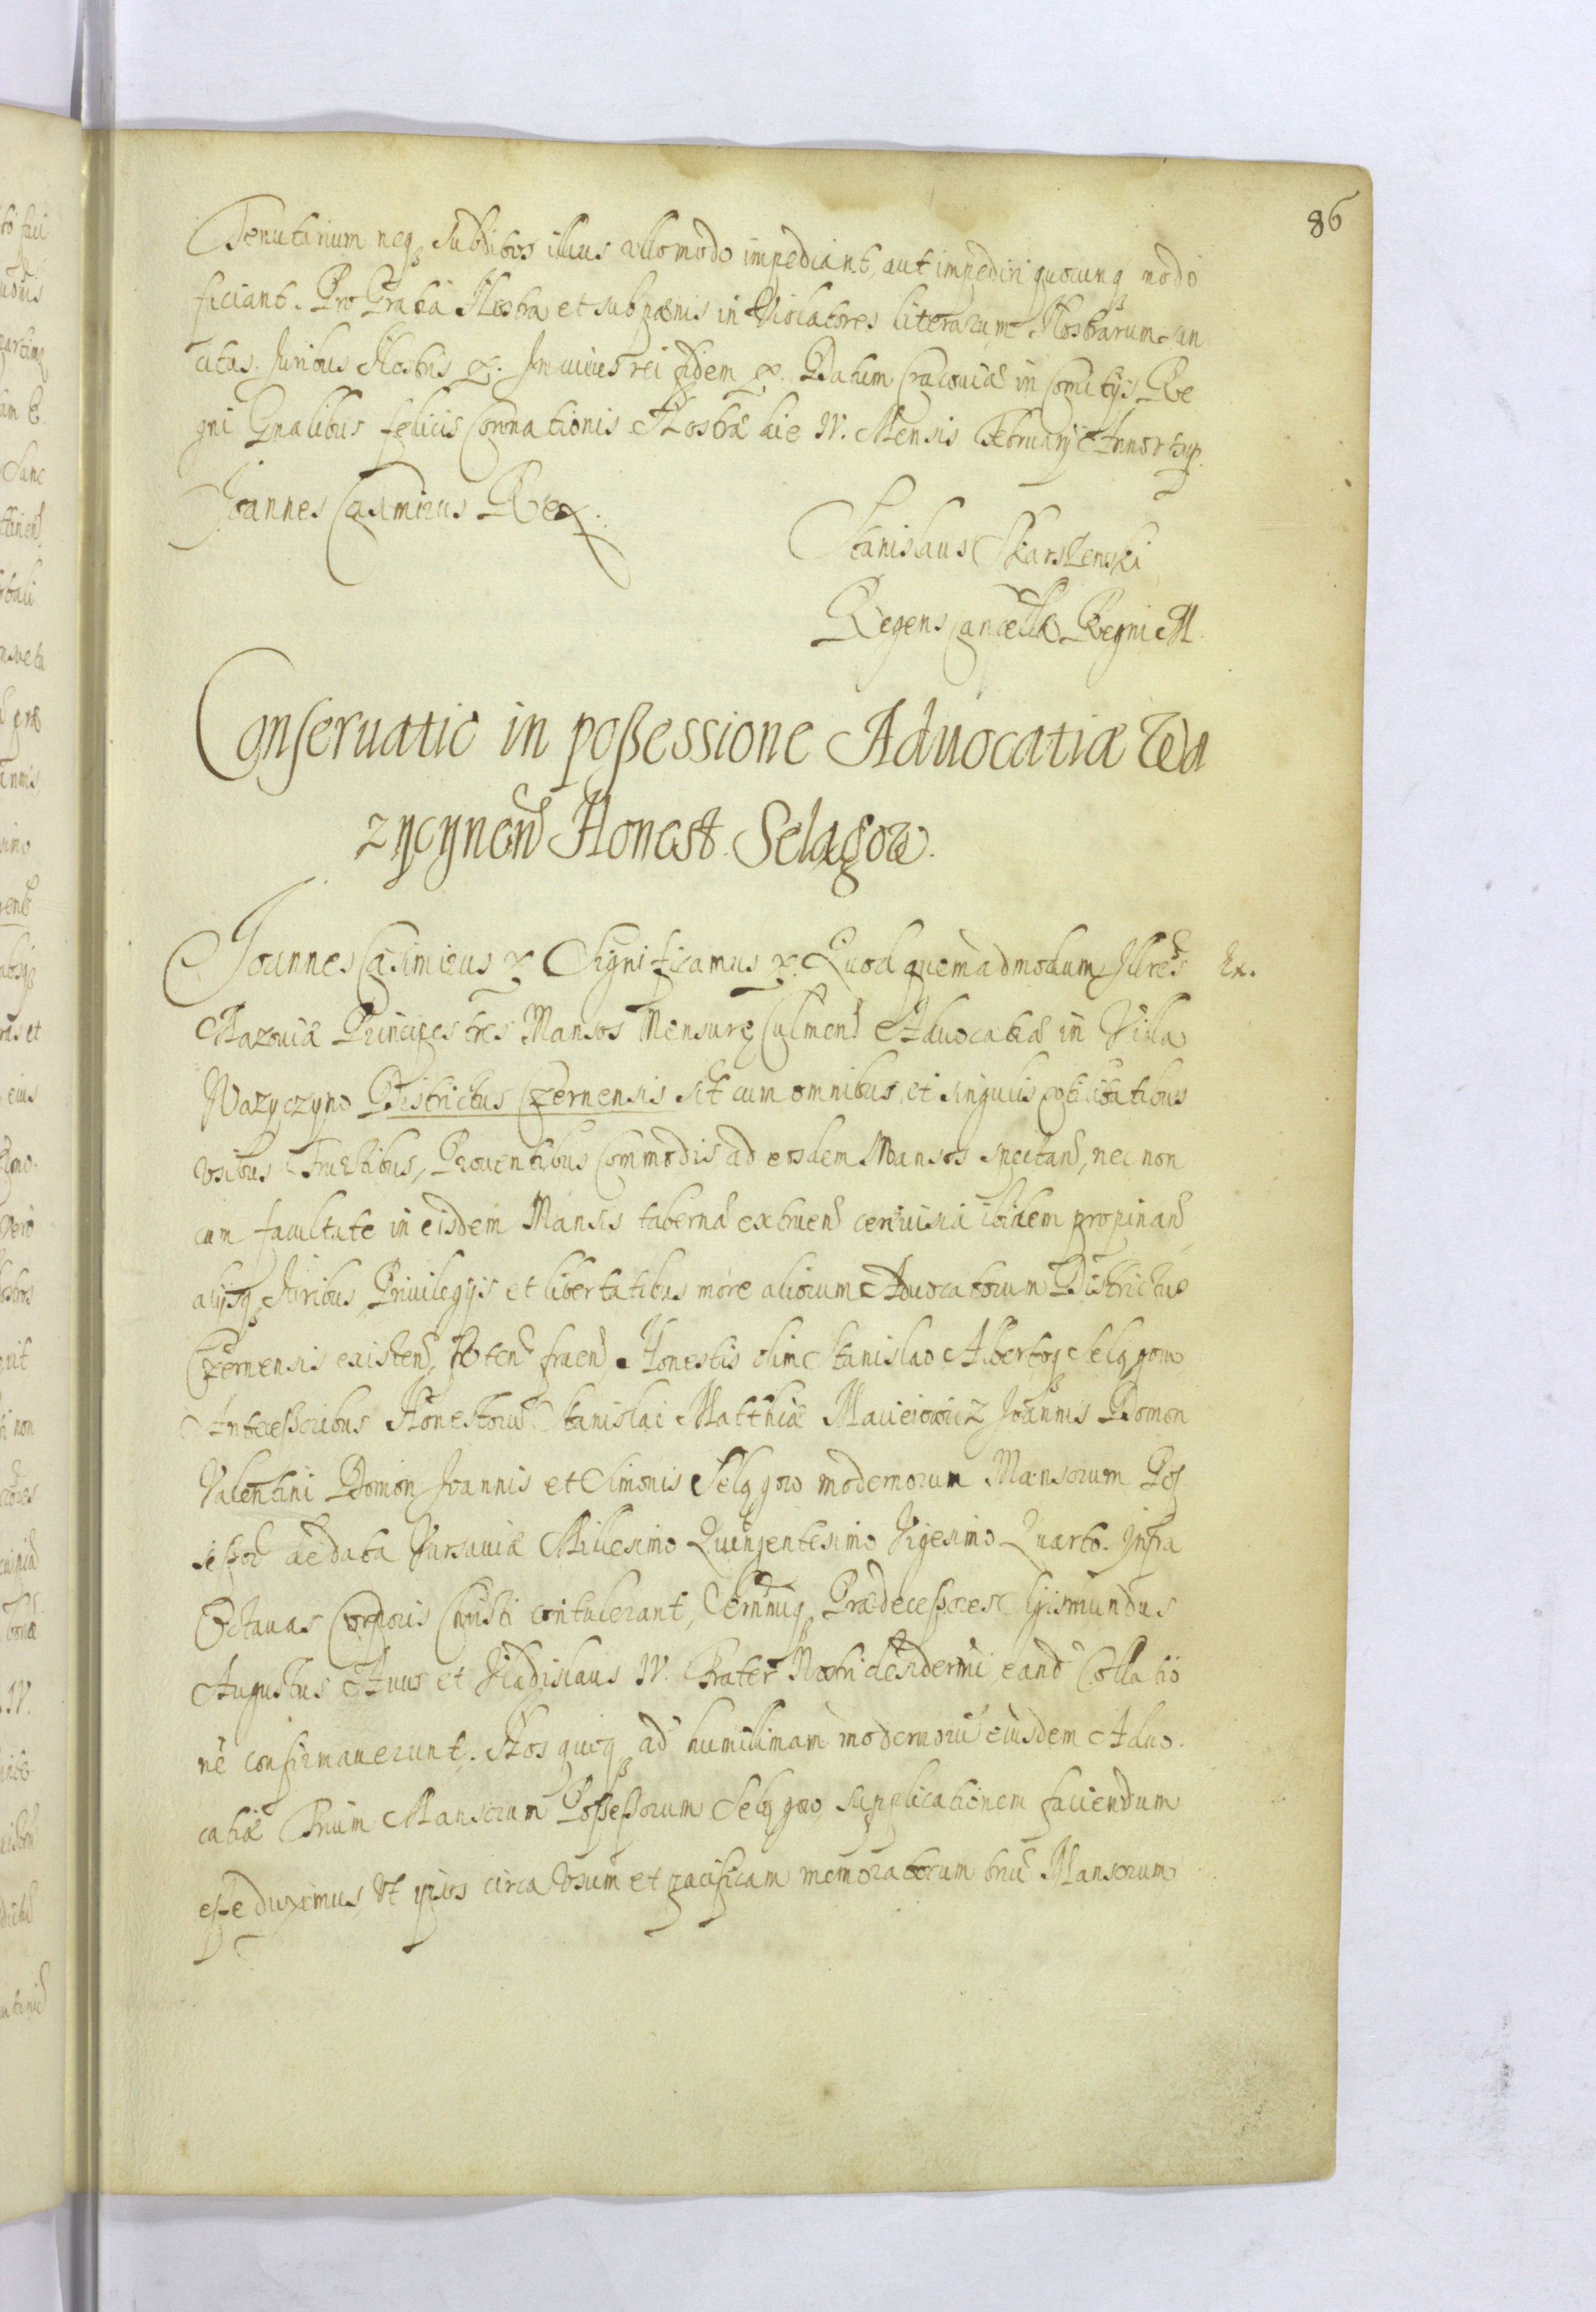 86
Tenutarium neq₃ Subditos illius ullo modo impediant, aut impediri quocunq₃ modo
ficiant. Pro Gratia Nostra et sub pænis in Violatores literarum Nostrarum san
citas. Juribus Nostris &. In cuius rei fidem &. Datum Cracouiæ in Comitijs Re
gni Gnalibus felicis Coronationis Nostræ die IV. Mensis February Anno
Joannes Casimirus Rex.
Stanislaus Skarszewski
Regens Cancellæ Regni M.
Conseruatio in possessione Aduocatiæ Wa
zycynen Honest. Selągow.
Joannes Casimirus & Significamus & Quod quemadmodum Illres Ex.
Mazouiæ Principes tres Mansos Mensuræ Culmen Aduocatiæ in Villa
Wazyczyno Districtus Czernensis sit cum omnibus, et singulis vtilitatibus
vsibus Fructibus, Prouentibus Commodis, ad eosdem Mansos spectan, nec non
cum facultate in eisdem Mansis taberna extruen ceruisia ibidem propinan
alijsq₃ Juribus Priuilegijs et libertatibus more aliorum Aduocatorum Districtus
Czernensis existen, fruen Honestis olim Stanislao Albertoq₃ Selągow
Antecessoribus Honestorū Stanislai Matthiæ Macieiowicz Joannis Domon
Valentini Domon Joannis et Simonis Selągow modernorum Mansorum Pos
sessor de data Varsauiæ Millesimo Quingentesimo Vigesimo Quarto. Infra
Octauas Corporis Christi contulerant, Sernmiq₃ Prædecessores Sigismundus
Augustus Auus et Vladislaus IV. Frater Nostri desidermi eand Collatio
nē confirmauerunt. Nos quoq₃ ad humillimam modernorū eiusdem Aduo
catiæ Trium Mansorum Possessorum Selągow supplicationem faciendum
esse duximus, Vt ipsos circa vsum et pacificam memoratorum triū Mansorum